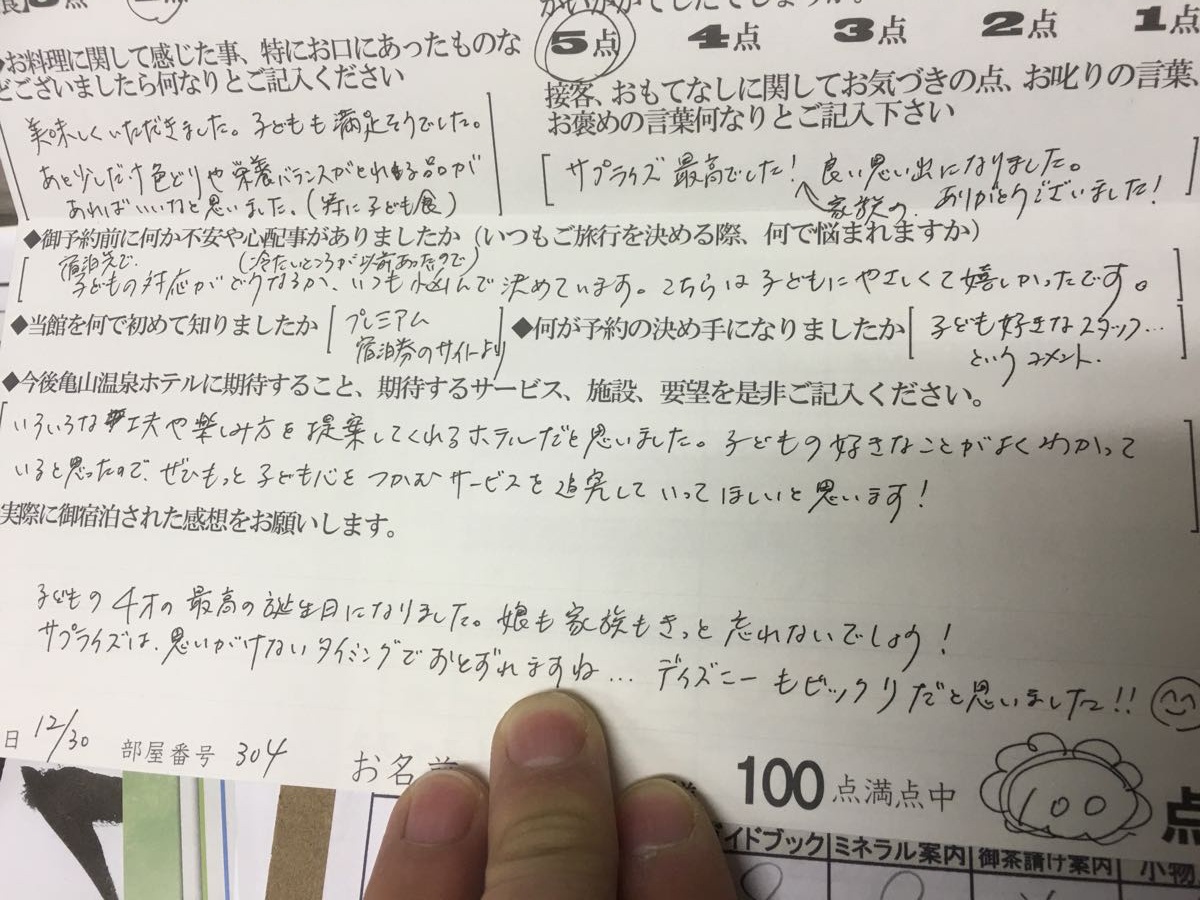 5点 4点 3点 2点 1点
◆お料理に関して感じた事、特にお口にあったものな
どございましたら何なりとご記入ください
美味しくいただきました。子どもも満足そうでした。
あと少しだけ色どりや栄養バランスがとれる品が
あればいいなと思いました。(特に子ども食)
接客、おもてなしに関してお気づきの点、お叱りの言葉、
お褒めの言葉何なりとご記入下さい
サプライズ最高でした! 良い思い出になりました。
家族の ありがとうございました!
◆御予約前に何か不安や心配事がありましたか(いつもご旅行を決める際、何で悩まれますか)
宿泊先で (冷たいところが以前あったので)
子どもの対応がどうなるか、いつも悩んで決めています。こちらは子どもにやさしくて嬉しかったです。
◆当館を何で初めて知りましたか
プレミアム
宿泊券のサイトより
◆何が予約の決め手になりましたか
子ども好きなスタッフ…
というコメント.
◆今後亀山温泉ホテルに期待すること、期待するサービス、施設、要望を是非ご記入ください。
いろいろな工夫や楽しみ方を提案してくれるホテルだと思いました。子どもの好きなことがよくわかって
いると思ったので、ぜひもっと子ども心をつかむサービスを追究していってほしいと思います!
実際に御宿泊された感想をお願いします。
子どもの4才の最高の誕生日になりました。娘も家族もきっと忘れないでしょう!
サプライズは、思いがけないタイミングでおとずれますね… ディズニーもビックリだと思いました!!
日 12/30 部屋番号 304 お名前
100点満点中 100 点
イドブック ミネラル案内 御茶請け案内 小物